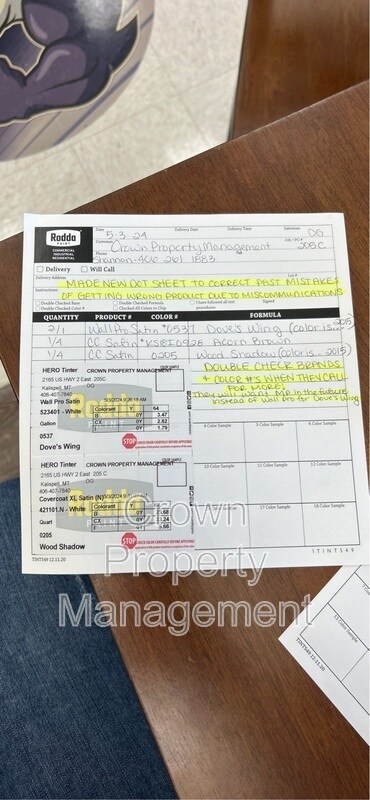 Rodda
PAINT
COMMERCIAL
INDUSTRIAL
RESIDENTIAL
Date
5-3-24
Delivery Date
Delivery Time
Salesman
DG
Customer
Crown Property Management
Job / PO #
205C
Phone
Shannon-406 261 1883
Delivery
Will Call
Delivery Address
Lot #
Instructions
MADE NEW DOT SHEET TO CORRECT PAST MISTAKES
OF GETTING WRONG PRODUCT DUE TO MISCOMMUNICATIONS
Double Checked Base
Double Checked Color #
Double Checked Formula
Checked All Colors to Chip
I have followed all proc
Signed
QUANTITY PRODUCT # COLOR # FORMULA
2/1 Wall Pro Satin #0537 Dove's Wing (color is... 2015)
1/4 CC Satin Acorn Brown
1/4 CC Satin 0205 Wood Shadow (color is... 2015)
DOUBLE CHECK BRANDS
+ COLOR #'S WHEN THEY CALL
FOR MORE!
They will want MP in the future
instead of Wall Pro for Dove's Wing
HERO Tinter CROWN PROPERTY MANAGEMENT
2165 US HWY 2 East 205C
Kalispell, MT DG DG
406-407-7840
Wall Pro Satin
523401 - White
Gallon
0537
Dove's Wing
Colorant Y 64
0Y 3.47
CX 0Y 2.62
I 0Y 1.79
STOP CHECK COLOR CAREFULLY BEFORE APPLICATION
COLOR SAMPLE
HERO Tinter CROWN PROPERTY MANAGEMENT
2165 US HWY 2 East 205 C
Kalispell, MT DG
406-407-7840
Covercoat XL Satin (N)
421101.N - White
Quart
0205
Wood Shadow
STOP CHECK COLOR CAREFULLY BEFORE APPLICATION
4 Color Sample
5 Color Sample
6 Color Sample
10 Color Sample
11 Color Sample
12 Color Sample
16 Color Sample
17 Color Sample
18 Color Sample
TINT549 12.11.20
STINT549
Crown
Property
Management
TINT549 12.11.20